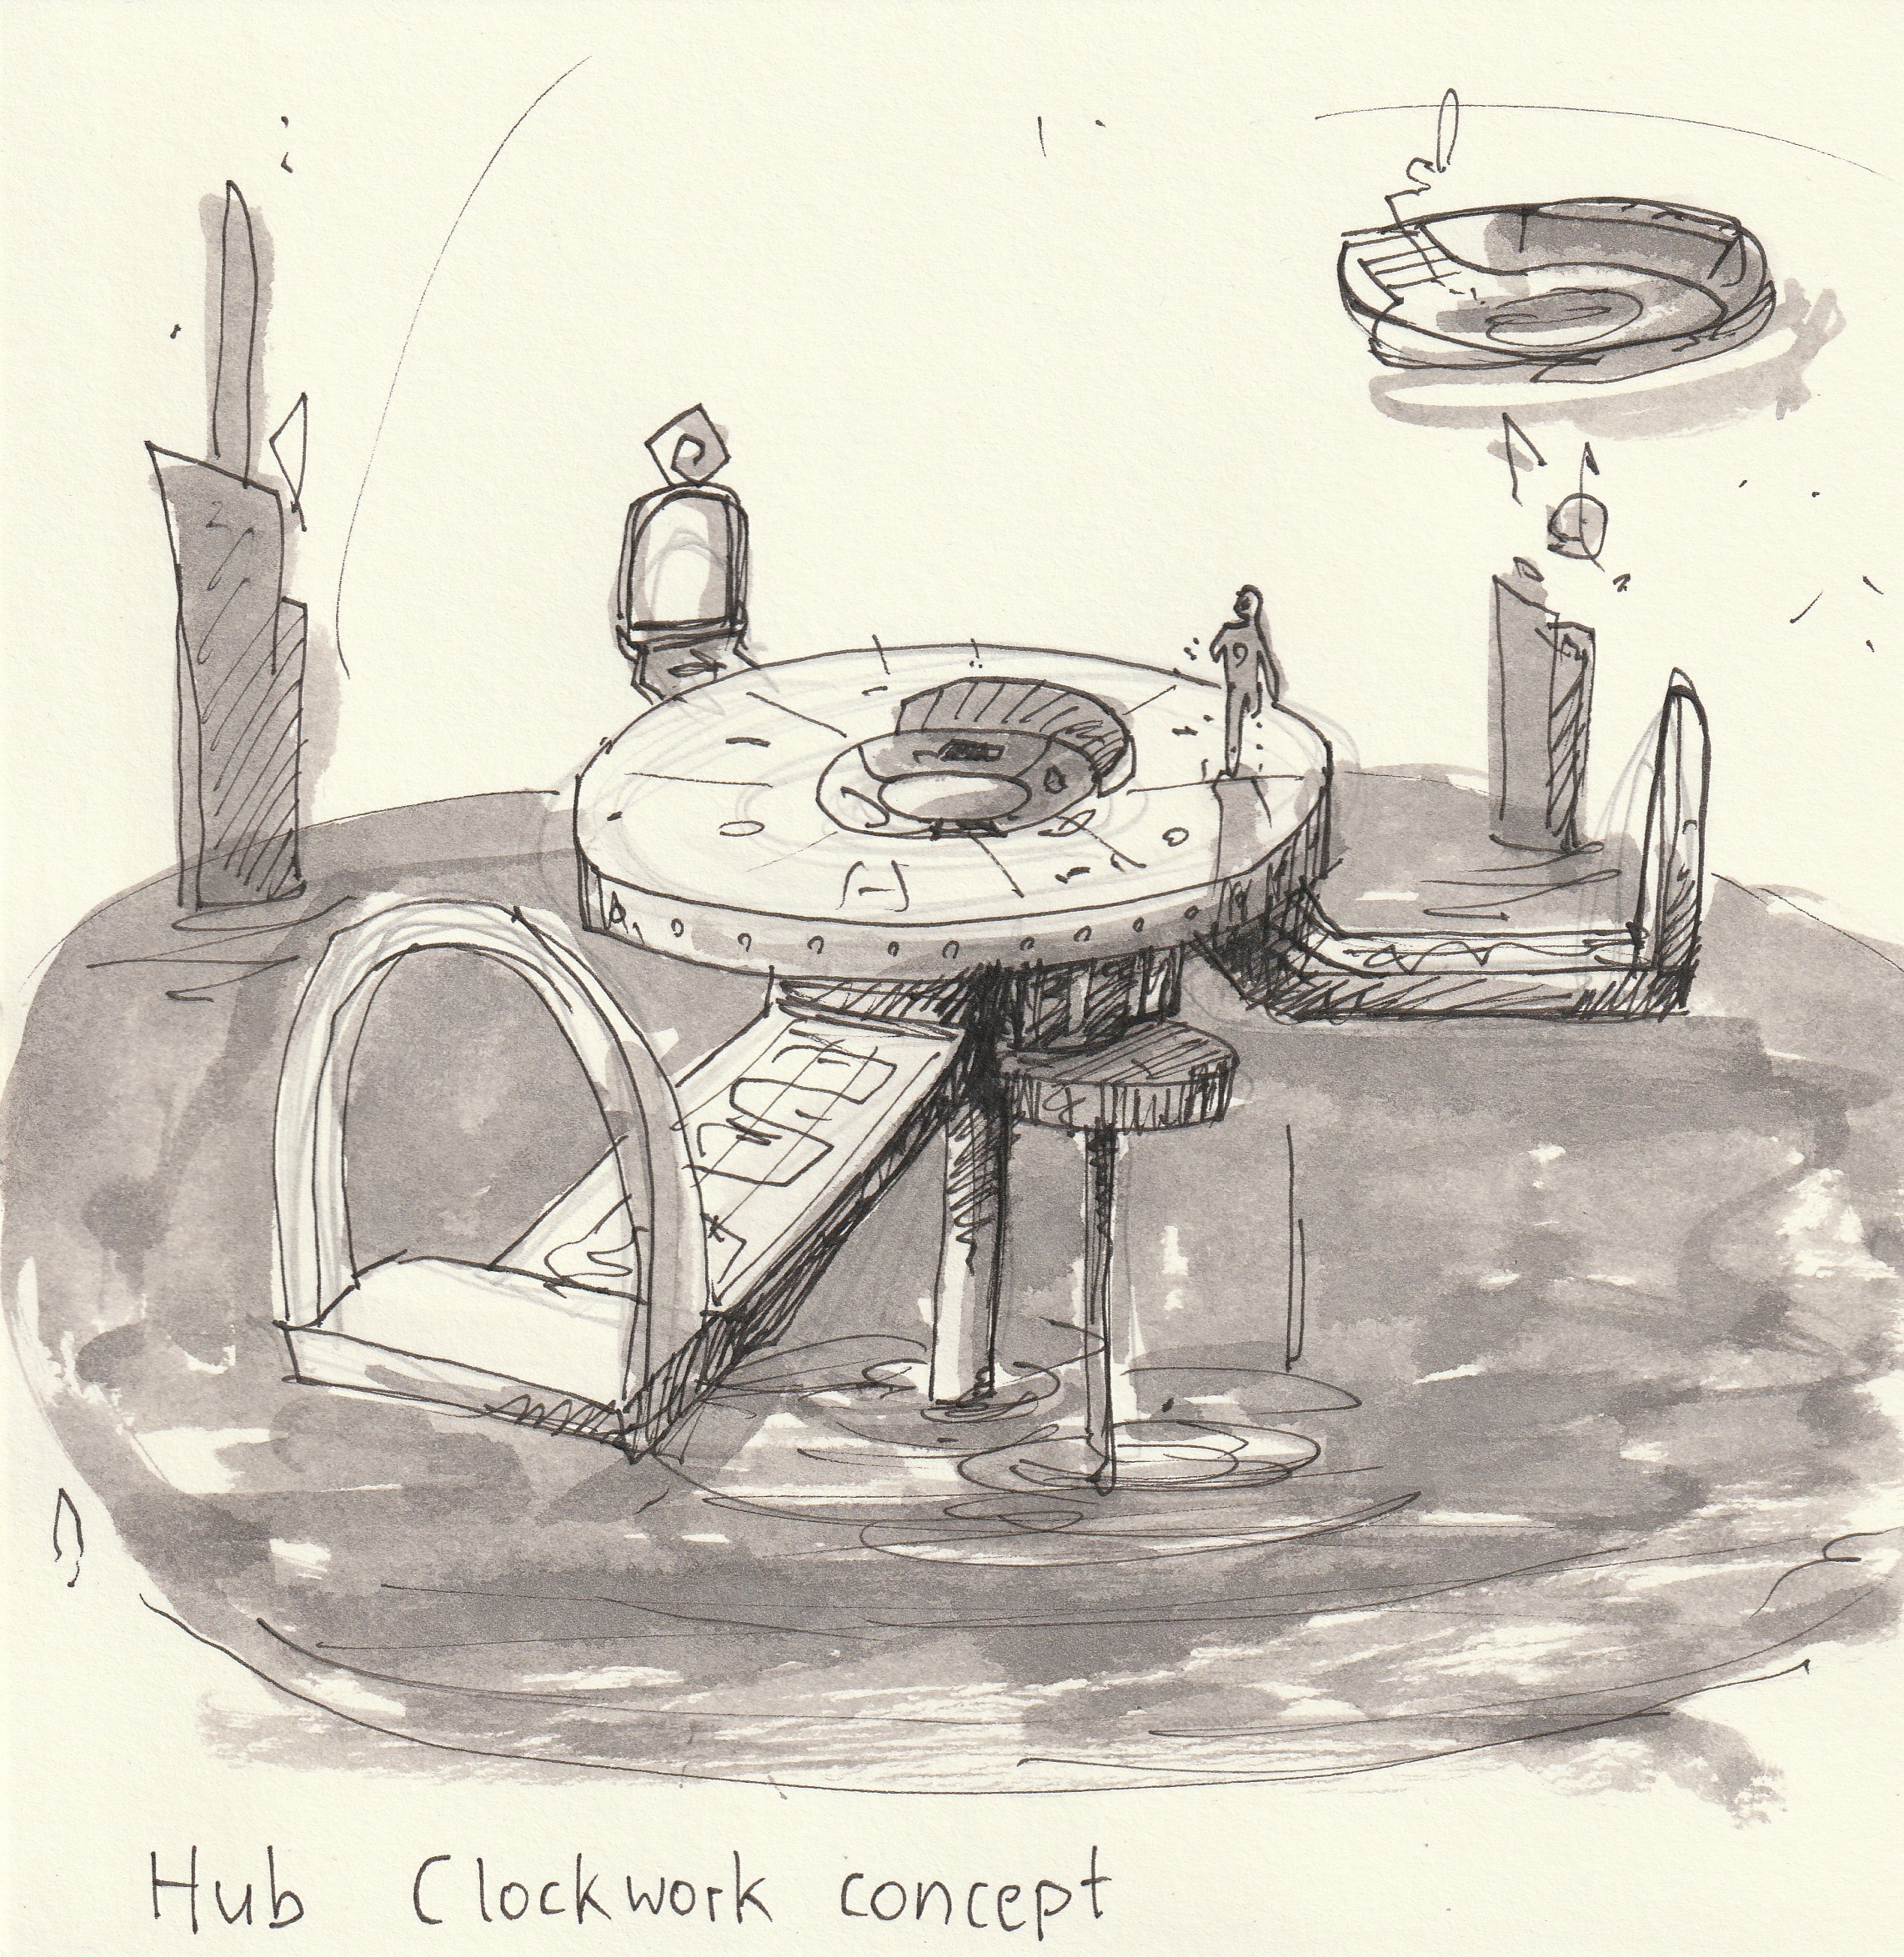 Hub Clockwork concept